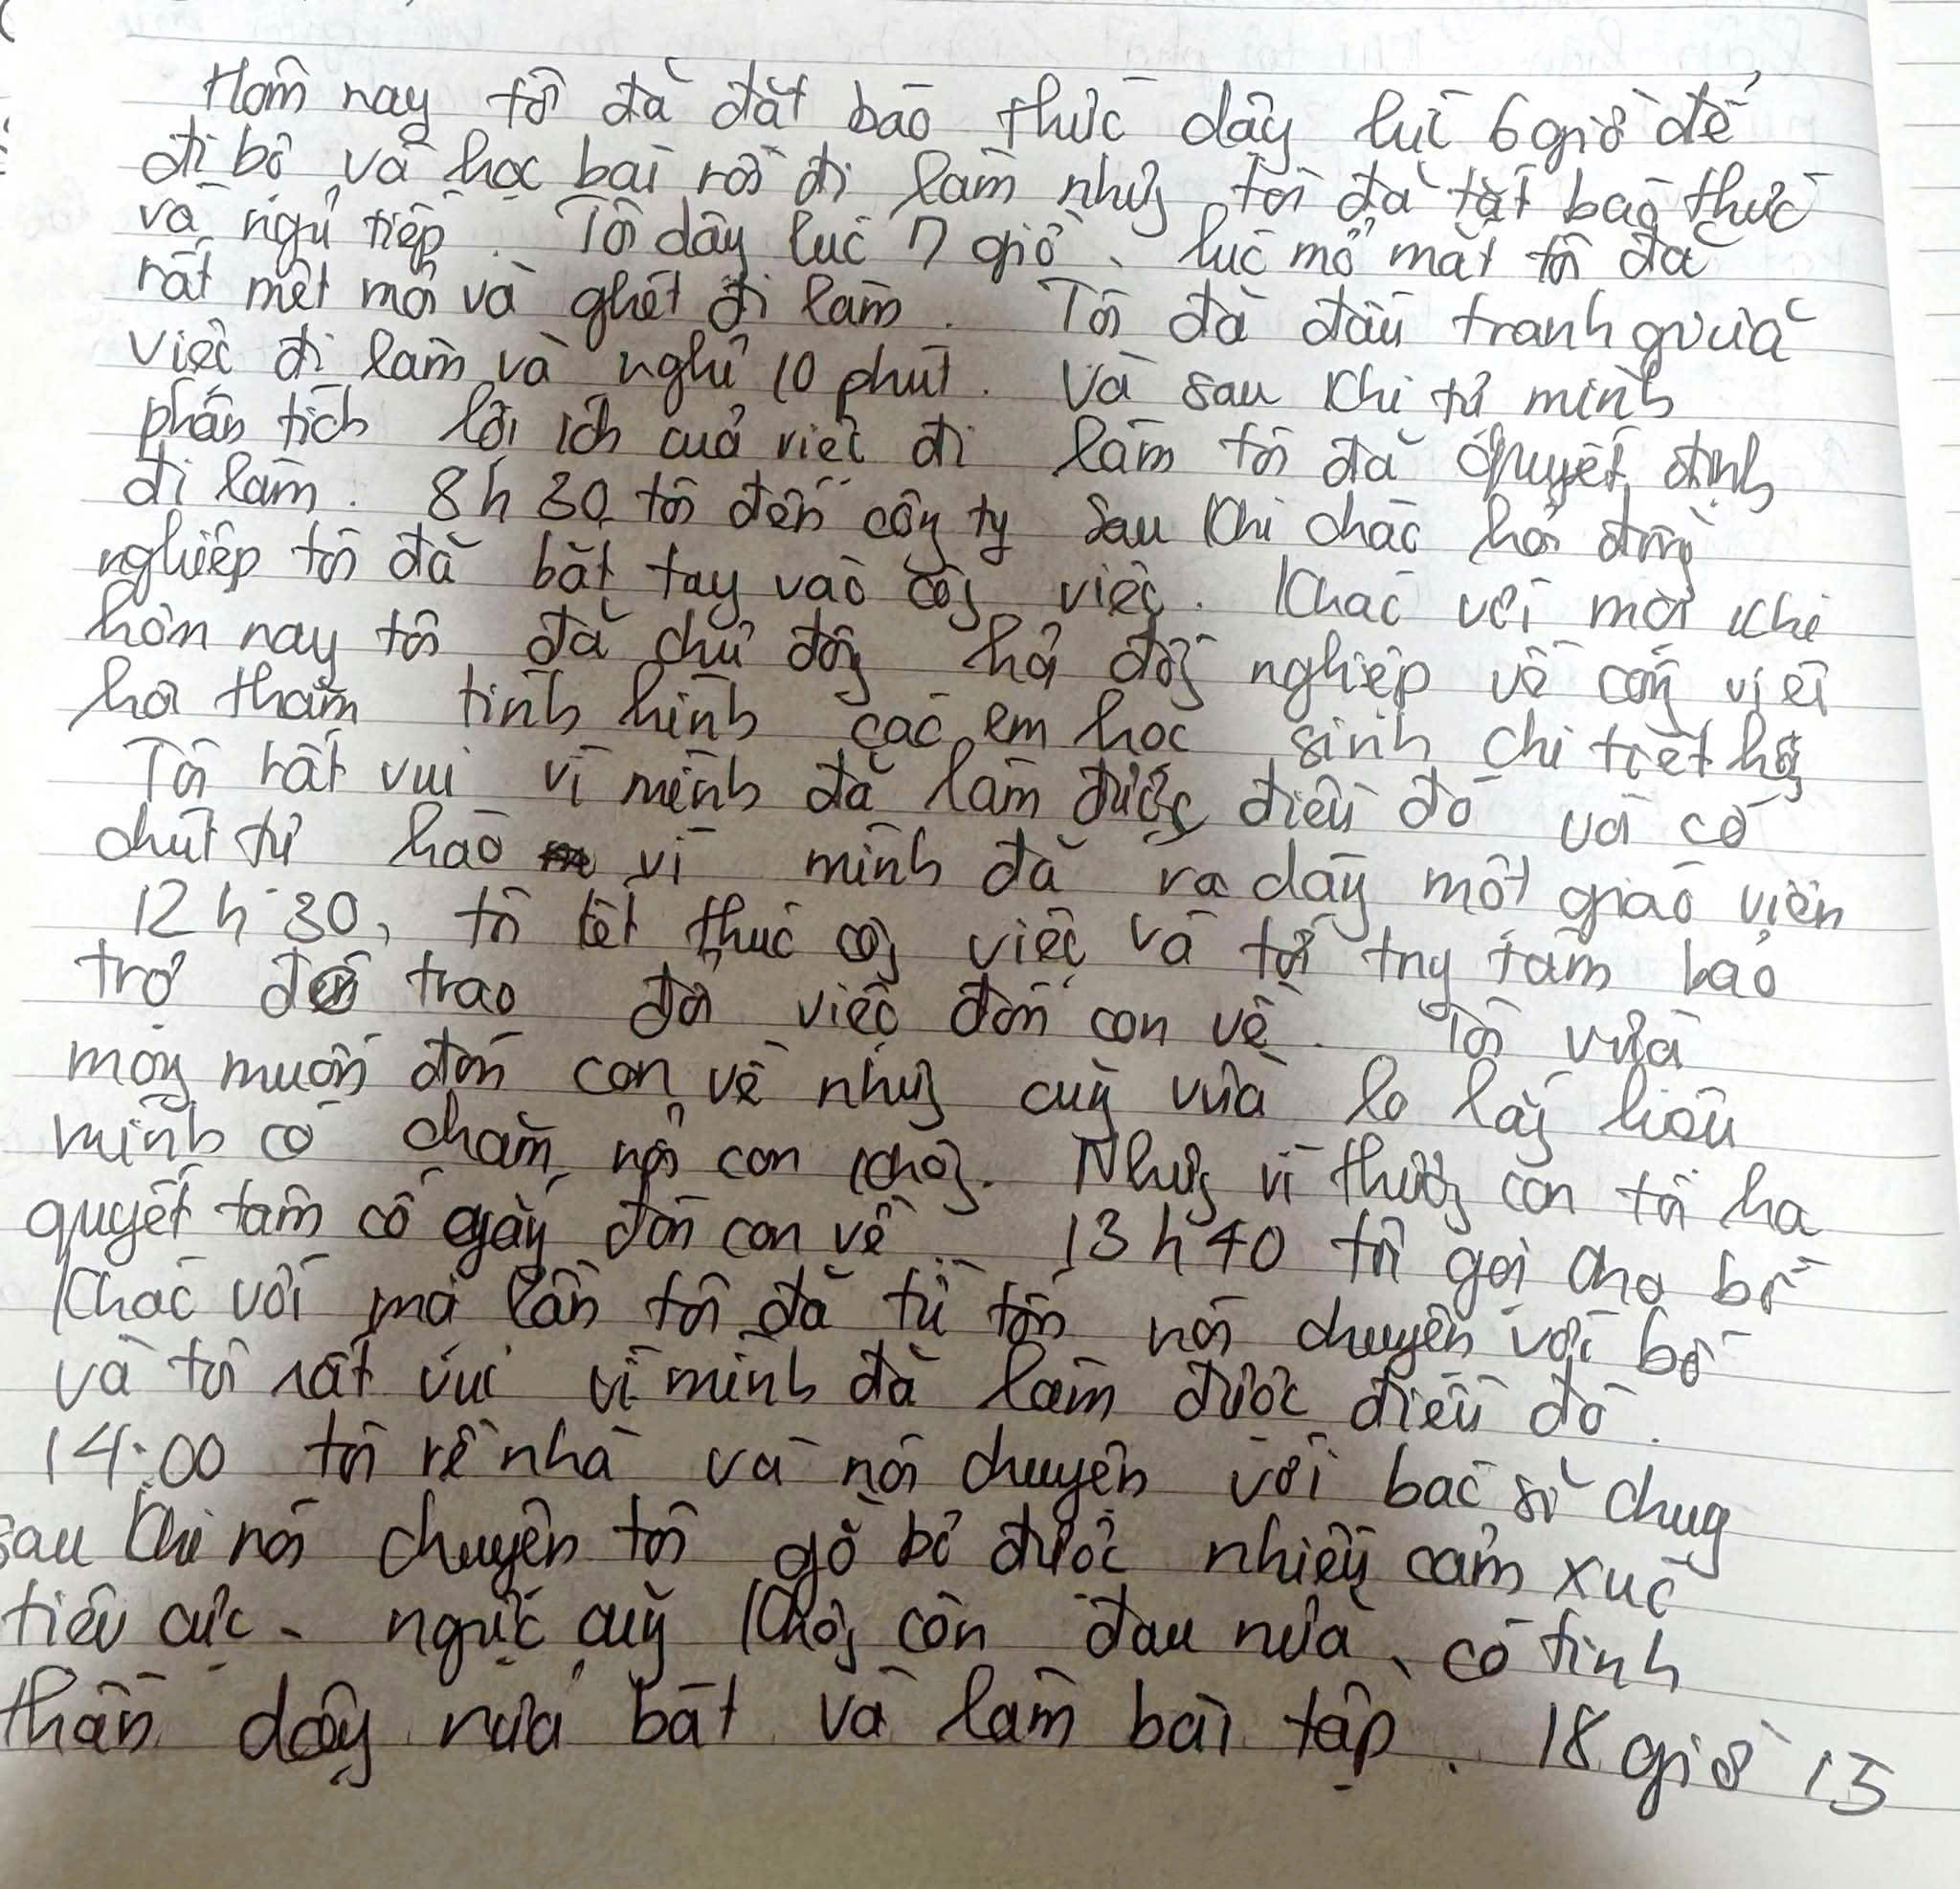 Hôm nay tôi đã đặt báo thức dậy lúc 6 giờ để
đi bộ và học bài rồi đi làm nhưng tôi đã tắt báo thức
và ngủ tiếp. Tôi dậy lúc 7 giờ, lúc mở mắt tôi đã
rất mệt mỏi và ghét đi làm. Tôi đã đấu tranh giữa
việc đi làm và nghỉ 10 phút. Và sau khi tự mình
phân tích lợi ích của việc đi làm tôi đã quyết định
đi làm. 8h30 tôi đến công ty sau khi chào hỏi đồng
nghiệp tôi đã bắt tay vào công việc. Khác với mọi khi
hôm nay tôi đã chủ động hỏi đồng nghiệp về công việc
hỏi thăm tình hình các em học sinh chi tiết hơn
Tôi rất vui vì mình đã làm được điều đó và có
chút tự hào vì mình đã ra dáng một giáo viên
12h30, tôi kết thúc công việc và tới trung tâm bảo
trợ để trao đổi việc đón con về. Tôi vừa
mong muốn đón con về nhưng cũng vừa lo lắng liệu
mình có chăm nổi con không. Nhưng vì thương con tôi
quyết tâm cố gắng đón con về. 13h40 tôi gọi cho bố
Khác với mọi lần tôi đã từ tốn nói chuyện với bố
và tôi rất vui vì mình đã làm được điều đó.
14:00 tôi về nhà và nói chuyện với bác sĩ
sau khi nói chuyện tôi gỡ bỏ được nhiều cảm xúc
tiêu cực, ngực cũng không còn đau nữa, có tinh
thần dậy rửa bát và làm bài tập. 18 giờ 15